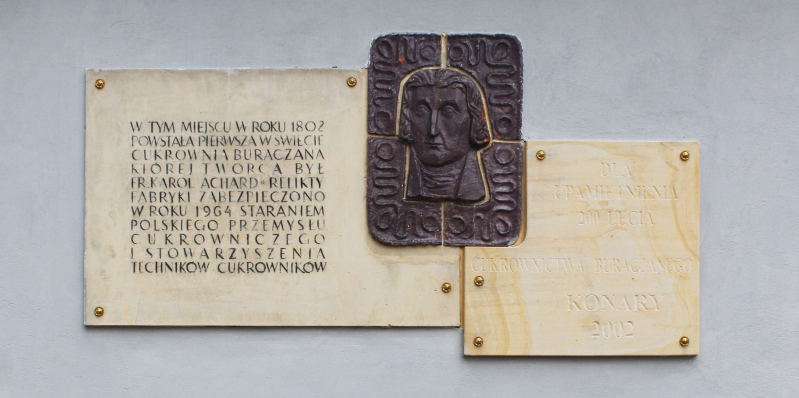 W TYM MIEJSCU W ROKU 1802
POWSTAŁA PIERWSZA W ŚWIECIE
CUKROWNIA BURACZANA
KTÓREJ TWÓRCĄ BYŁ
FR. KAROL ACHARD • RELIKTY
FABRYKI ZABEZPIECZONO
W ROKU 1964 STARANIEM
POLSKIEGO PRZEMYSŁU
CUKROWNICZEGO
I STOWARZYSZENIA
TECHNIKÓW CUKROWNIKÓW
DLA
UPAMIĘTNIENIA
200 LECIA
CUKROWNICTWA BURACZANEGO
KONARY
2002